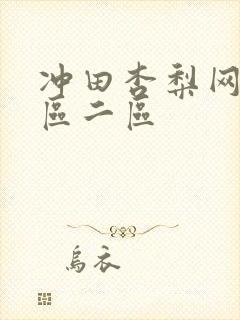 冲田杏梨网
區二區
烏衣